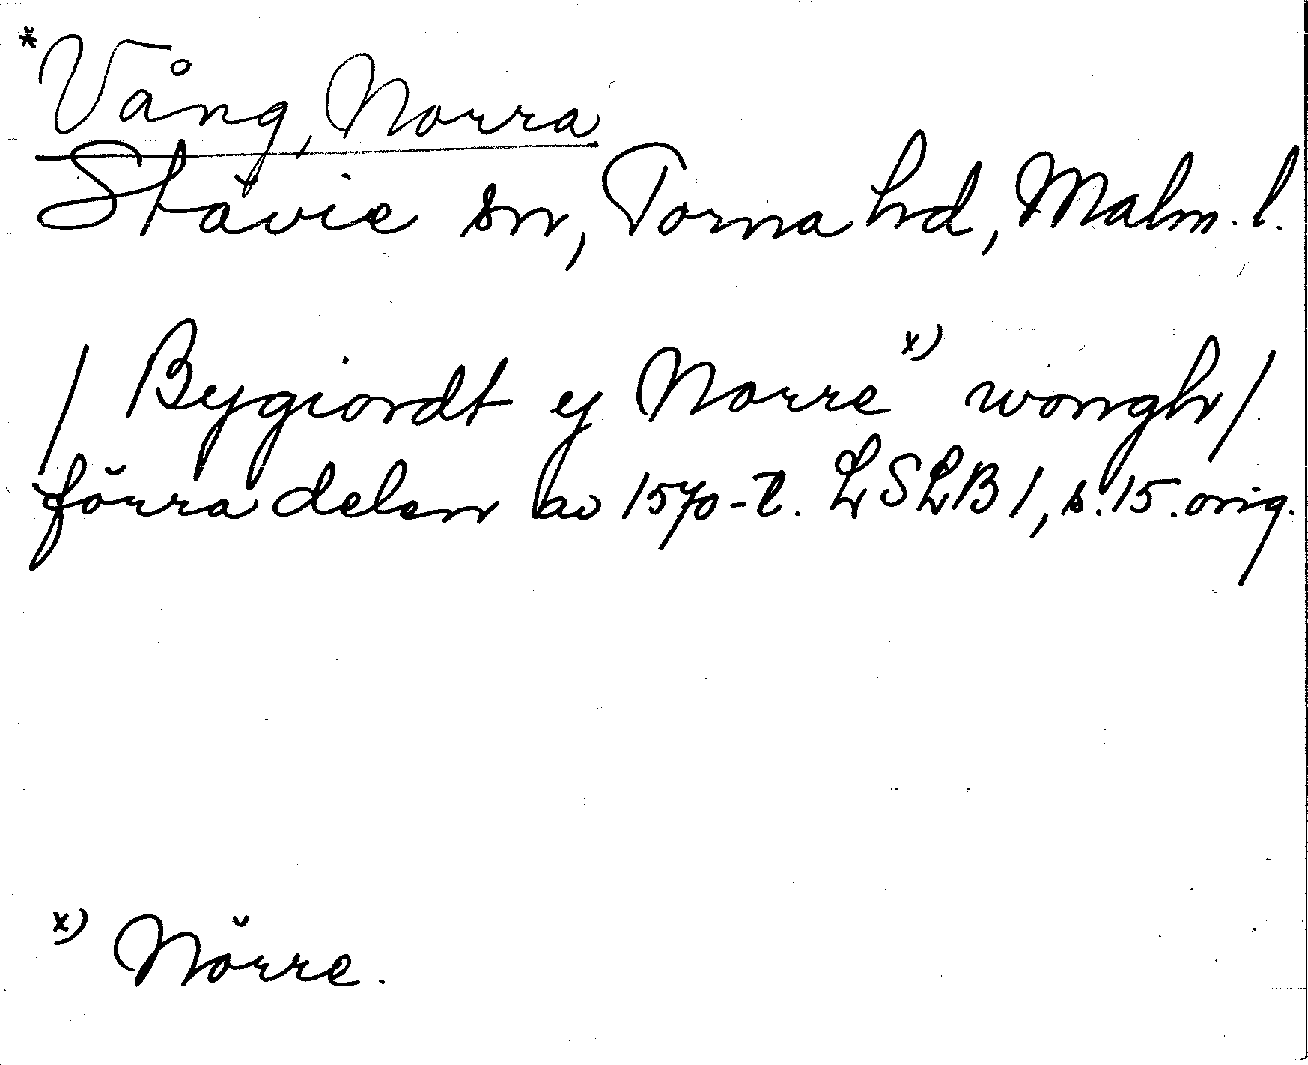 *Vång, Norra
Stävie sn, Torna hd, Malm. l.
/ Bygiordt y Norre x) wongh /
förra delen av 1570-t. LSLB 1, s. 15. orig.
x) Nörre.